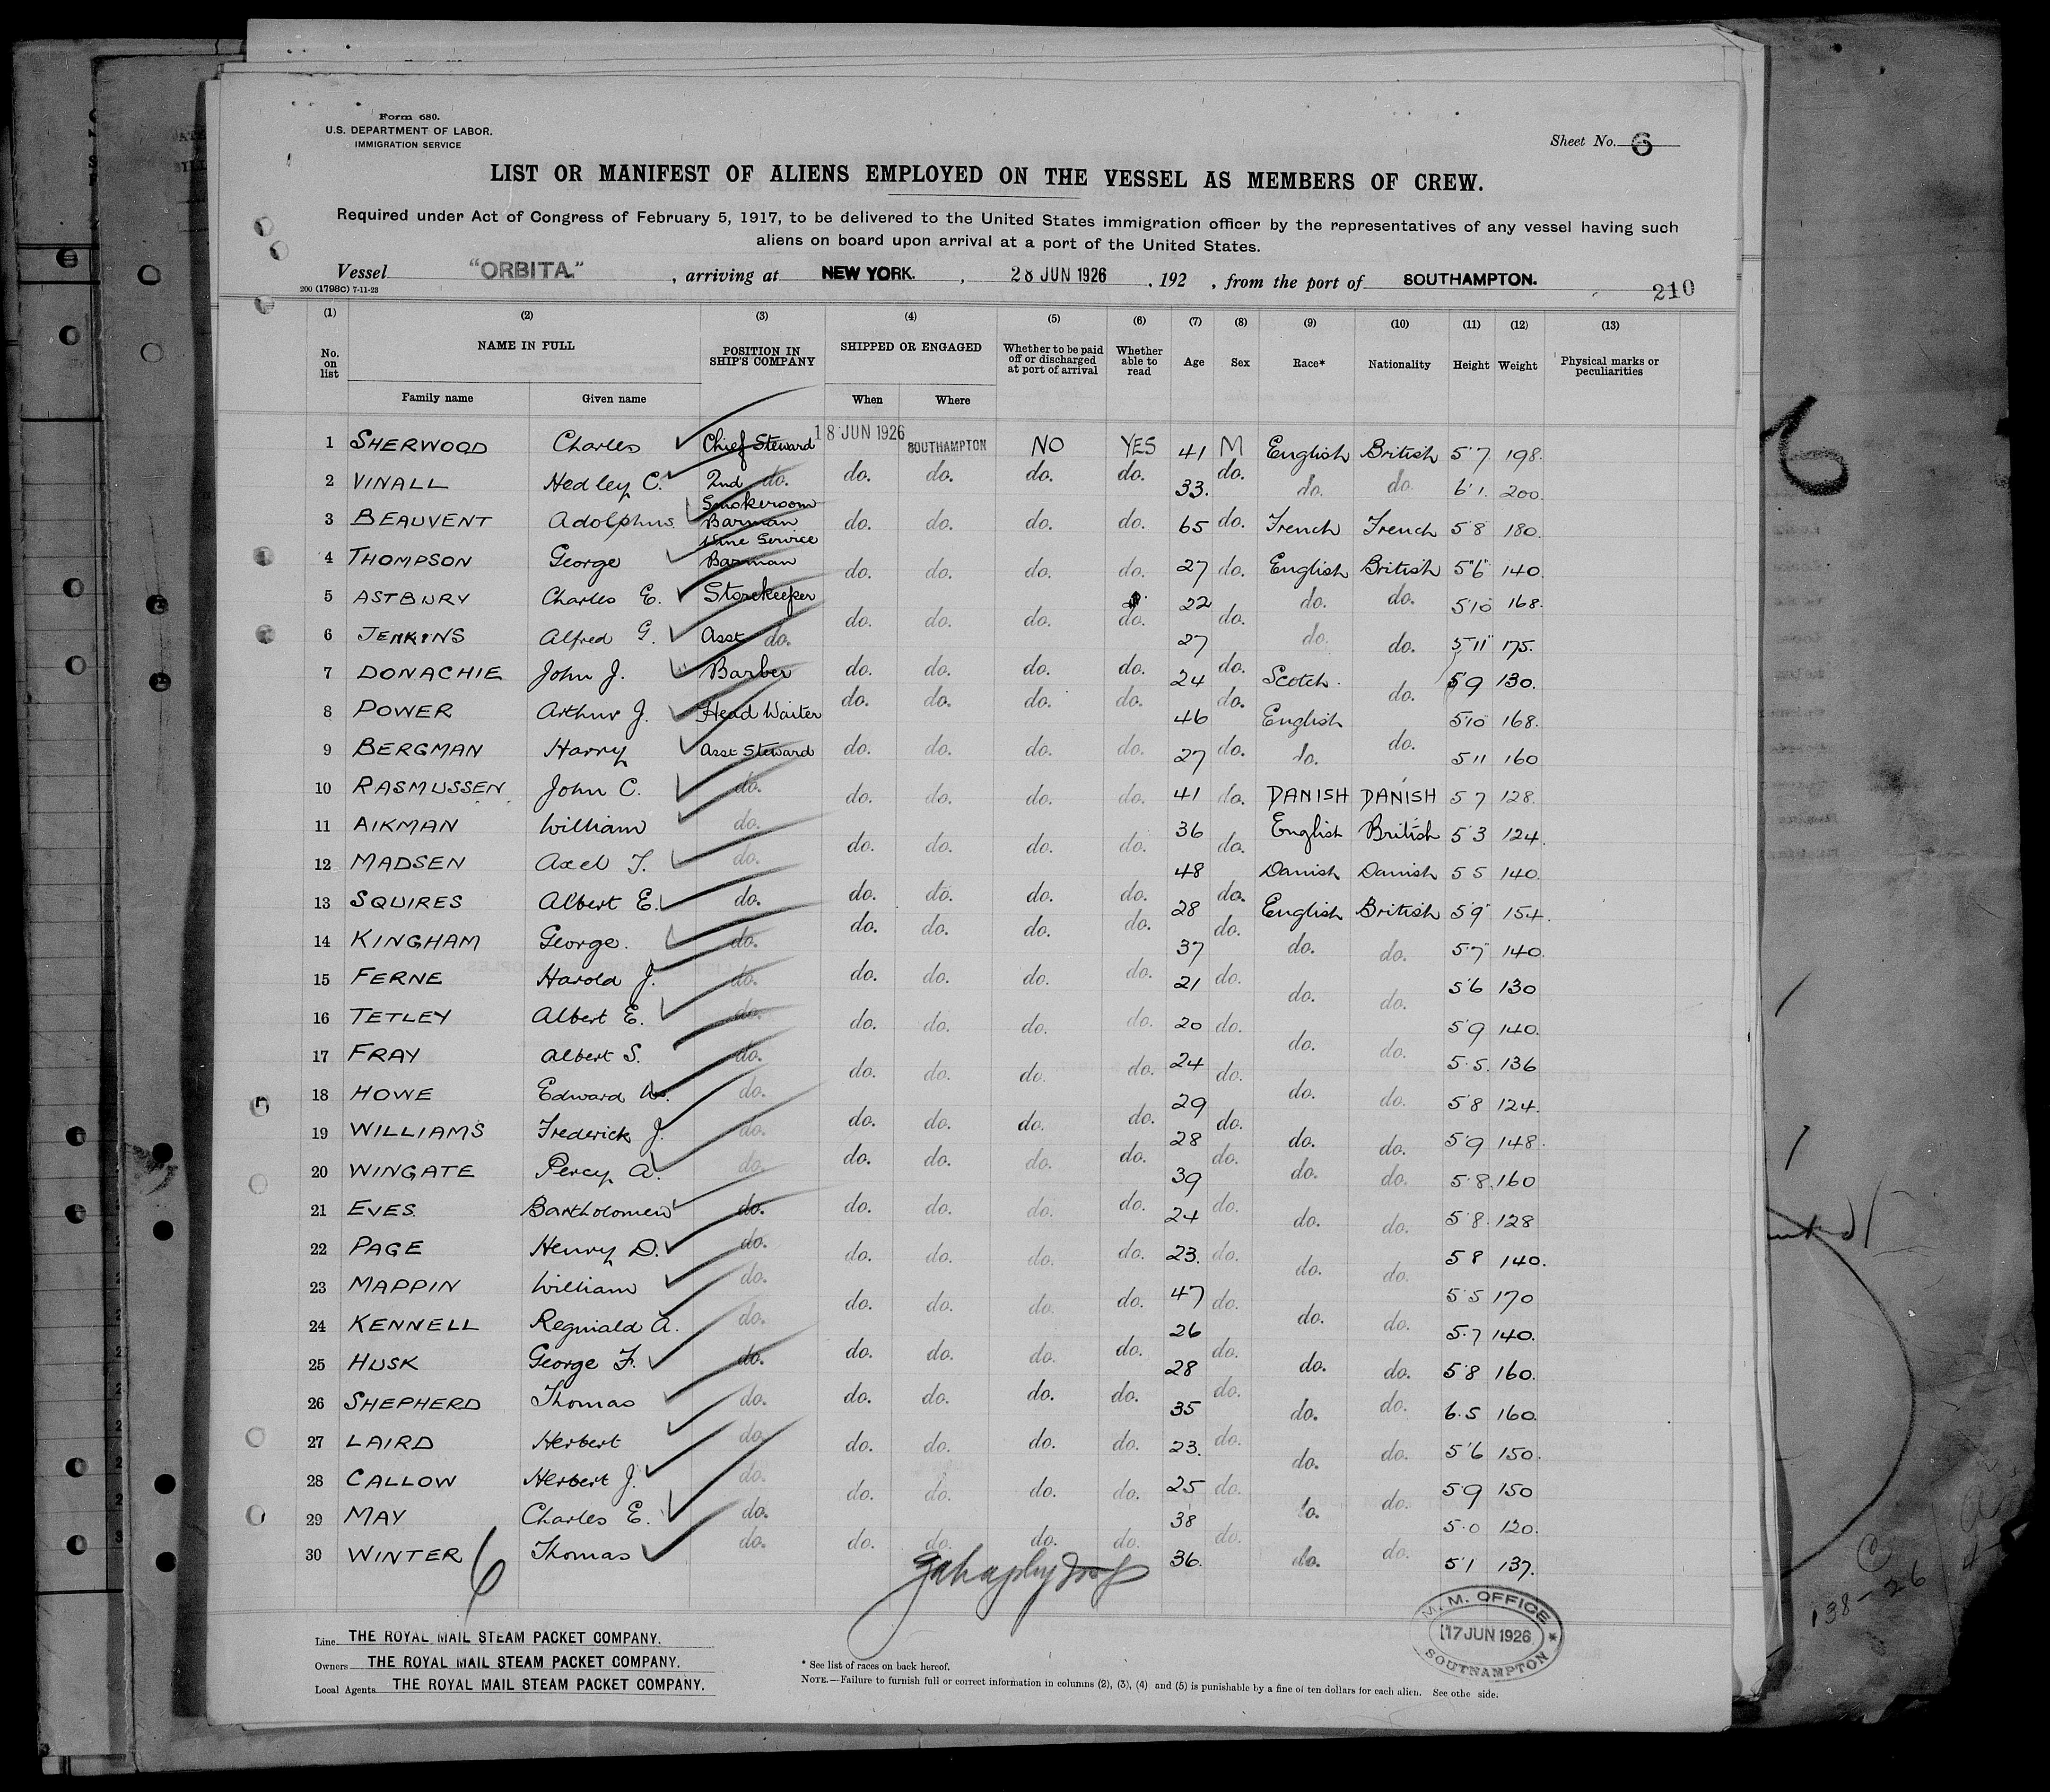 Form 680.
U.S. DEPARTMENT OF LABOR.
IMMIGRATION SERVICE
Sheet No. 6
LIST OR MANIFEST OF ALIENS EMPLOYED ON THE VESSEL AS MEMBERS OF CREW.
Required under Act of Congress of February 5, 1917, to be delivered to the United States immigration officer by the representatives of any vessel having such
aliens on board upon arrival at a port of the United States.
Vessel "ORBITA." , arriving at NEW YORK. , 28 JUN 1926 , 192 , from the port of SOUTHAMPTON.
200 (1798c) 7-11-23
210
(1) (2) (3) (4) (5) (6) (7) (8) (9) (10) (11) (12) (13)
No. on list NAME IN FULL POSITION IN SHIP'S COMPANY SHIPPED OR ENGAGED Whether to be paid off or discharged at port of arrival Whether able to read Age Sex Race* Nationality Height Weight Physical marks or peculiarities
Family name Given name When Where
1 SHERWOOD Charles Chief Steward 18 JUN 1926 SOUTHAMPTON NO YES 41 M English British 5'7 198.
2 VINALL Hedley C. 2nd do. do. do. do. do. 33. do. do. do. 6'1. 200.
3 BEAUVENT Adolphus Smokeroom Barman do. do. do. do. 65 do. French French 5'8 180.
4 THOMPSON George Wine Service Barman do. do. do. do. 27 do. English British 5'6" 140.
5 ASTBURY Charles E. Storekeeper do. do. do. do. 22 do. do. do. 5'10 168.
6 JENKINS Alfred G. Asst do. do. do. do. do. 27 do. do. do. 5'11" 175.
7 DONACHIE John J. Barber do. do. do. do. 24 do. Scotch. do. 5'9 130.
8 POWER Arthur J. Head Waiter do. do. do. do. 46 do. English do. 5'10 168.
9 BERGMAN Harry Asst Steward do. do. do. do. 27 do. do. 5'11 160
10 RASMUSSEN John C. do. do. do. do. do. 41 do. DANISH DANISH 5'7 128.
11 AIKMAN William do. do. do. do. do. 36 do. English British 5'3 124.
12 MADSEN Axel T. do. do. do. do. do. 48 do. Danish Danish 5'5 140.
13 SQUIRES Albert E. do. do. do. do. do. 28 do. English British 5'9" 154.
14 KINGHAM George. do. do. do. do. do. 37 do. do. do. 5'7" 140.
15 FERNE Harold J. do. do. do. do. do. 21 do. do. do. 5'6 130
16 TETLEY Albert E. do. do. do. do. do. 20 do. do. do. 5'9 140.
17 FRAY Albert S. do. do. do. do. do. 24 do. do. do. 5.5. 136
18 HOWE Edward W. do. do. do. do. do. 29 do. do. do. 5'8 124.
19 WILLIAMS Frederick J. do. do. do. do. do. 28 do. do. do. 5'9 148.
20 WINGATE Percy A. do. do. do. do. do. 39 do. do. do. 5.8. 160
21 EVES. Bartholomew do. do. do. do. do. 24 do. do. do. 5'8. 128
22 PAGE Henry D. do. do. do. do. do. 23. do. do. do. 5'8 140.
23 MAPPIN William do. do. do. do. do. 47 do. do. do. 5'5 170
24 KENNELL Reginald A. do. do. do. do. do. 26 do. do. do. 5.7 140.
25 HUSK George F. do. do. do. do. do. 28 do. do. do. 5'8 160.
26 SHEPHERD Thomas do. do. do. do. do. 35 do. do. do. 6.5 160.
27 LAIRD Herbert do. do. do. do. do. 23. do. do. do. 5'6 150.
28 CALLOW Herbert J. do. do. do. do. do. 25 do. do. do. 5'9 150
29 MAY Charles E. do. do. do. do. do. 38 do. do. do. 5.0 120.
30 WINTER Thomas do. 36. do. 5'1 137.
6
M. M. OFFICE
17 JUN 1926
SOUTHAMPTON
Line THE ROYAL MAIL STEAM PACKET COMPANY.
Owners THE ROYAL MAIL STEAM PACKET COMPANY.
Local Agents THE ROYAL MAIL STEAM PACKET COMPANY.
* See list of races on back hereof.
NOTE.—Failure to furnish full or correct information in columns (2), (3), (4) and (5) is punishable by a fine of ten dollars for each alien. See othe side.
6
138-26